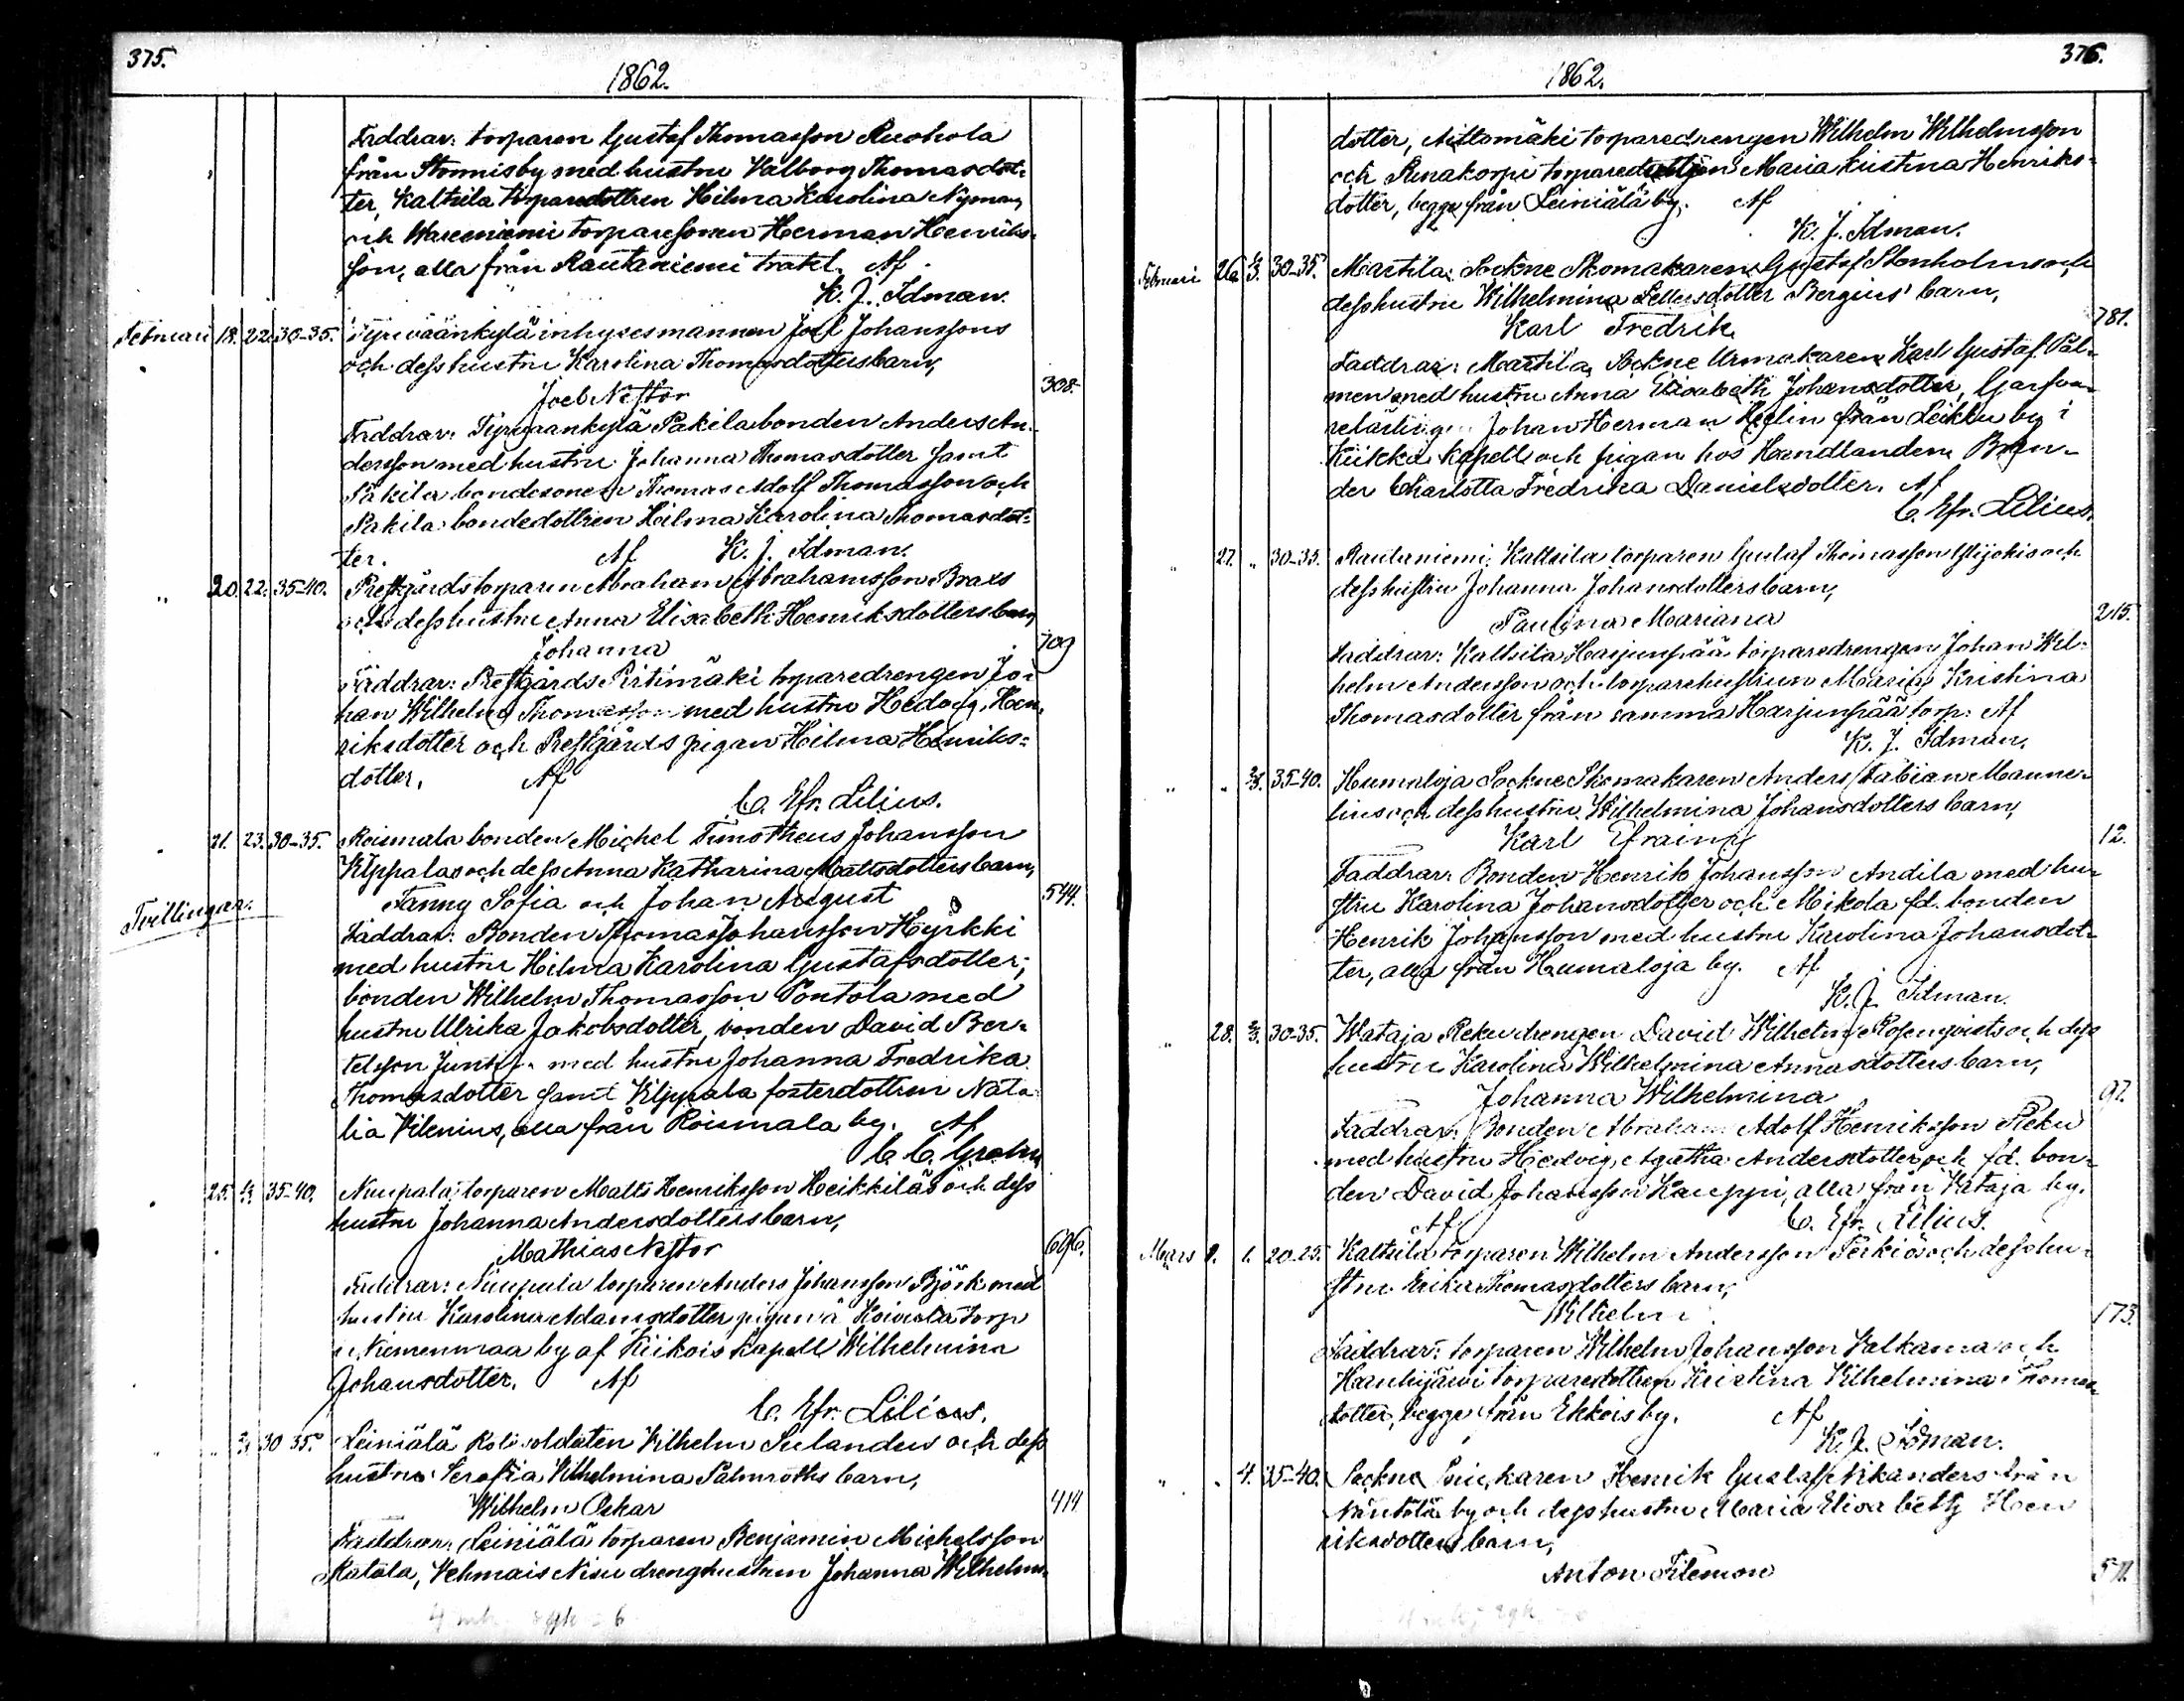 375.
1862.
Faddrar: torparen Gustaf Thomasson Ruohola
från Stormisby med hustru Valborg Thomasdot-
ter, Kaltsila torparedottren Hilma Karolina Nyman
och torparesonen Herman Henriks-
son, alla från Rautaniemi trakt. Af
K. J. Idman.
Februari 18. 22. 30-35. Tyrväänkylä inhysesmannen Joel Johanssons
och dess hustru Karolina Thomasdotters barn,
Joel Nestor
308.
Faddrar: Tyrväänkylä Pakila bonden Anders An-
dersson med hustru Johanna Thomasdotter samt
Pakila bondesonen Thomas Adolf Thomasson och
Pakila bondedottren Hilma Karolina Thomasdot-
ter. Af K. J. Idman.
" 20. 22. 35-40. Prestgårds torparen Abraham Abrahamsson Braxs
och dess hustru Anna Elisabeth Henriksdotters barn,
Johanna
709
Faddrar: Prestgårds Pirtimäki torparedrengen Jo-
han Wilhelm Thomasson med hustru Hedvig Hen-
riksdotter och Prestgårds pigan Hilma Henriks-
dotter. Af
C. Efr. Lilius.
21. 23. 30-35. Roismala bonden Michel Timotheus Johansson
Klppalas och dess Anna Katharina Mattsdotters barn,
Tvillingar.
Fanny Sofia och Johan August
544.
Faddrar: Bonden Thomas Johansson Hyrkki
med hustru Hilma Karolina Gustafsdotter;
bonden Wilhelm Thomasson Pontola med
hustru Ulrika Jakobsdotter, bonden David Ber-
telsson med hustru Johanna Fredrika
Thomasdotter samt Klppala fosterdottren Nata-
lia Vilenius, alla från Roismala by. Af
C. C. Grahn
25. 35-40. Nuupala torparen Matts Henriksson Heikkiläs och dess
hustru Johanna Andersdotters barn,
Mathias Nestor
696.
Faddrar: Nuupala torparen Anders Johansson Björk med
hustru Karolina Adamsdotter pigan å Koivula torp
i Niemenmaa by af Kiikois kapell Wilhelmina
Johansdotter. Af
C. Efr. Lilius.
30 35. Leiniälä Rote soldaten Vilhelm Selanders och dess
hustru Serafia Vilhelmina Palmroths barn,
Wilhelm Oskar
414
Faddrar: Leiniälä torparen Benjamin Michelsson
Matala, Vehmais Nisu drenghustrun Johanna Wilhelms-
376.
1862.
dotter, Aittomäki torparedrengen Wilhelm Wilhelmsson
och Maria Kristina Henriks-
dotter, begge från Leiniälä by. Af
K. J. Idman.
Februari 26 30-35. Martila Sockne Skomakaren Gustaf Stenholms och
dess hustru Wilhelmina Bergius' barn,
Karl Fredrik
781.
Faddrar: Martila Sockne Urmakaren Karl Gustaf Pal-
men med hustru Anna Elisabeth Johansdotter, Garfva-
relärlingen Johan Herman Heglin från Leikku by i
Kiikka kapell och pigan hos Handlanden Bren-
der Charlotta Fredrika Danielsdotter. Af
C. Efr. Lilius.
" 27. " 30-35. Rautaniemi Kaltsila torparen Gustaf Thomasson Ylijokis och
dess hustru Johanna Johansdotters barn,
Paulina Mariana
215.
Faddrar: Kaltsila Harjunpää torparedrengen Johan Wil-
helm Andersson och torparehustrun Maria Kristina
Thomasdotter från samma Harjunpää torp. Af
K. J. Idman.
" " 35-40. Humaloja Sockne Skomakaren Anders Fabian Manne-
lius och dess hustru Wilhelmina Johansdotters barn,
Karl Efraim
12.
Faddrar: Bonden Henrik Johansson Andila med hu-
stru Karolina Johansdotter och Mikola fd. bonden
Henrik Johansson med hustru Karolina Johansdot-
ter, alla från Humaloja by. Af
K. J. Idman.
" 28. 30-35. Wataja Reku drengen David Wilhelm Rosenqvists och dess
hustru Karolina Wilhelmina Annasdotters barn,
Johanna Wilhelmina
97.
Faddrar: Bonden Abraham Adolf Henriksson Reku
med hustru Hedvig Agatha Andersdotter och fd. bon-
den David Johansson Kauppi, alla från Wataja by.
Af C. Efr. Lilius.
Mars 1. 20-25. Kaltsila torparen Wilhelm Andersson Perkiös och dess hu-
stru Erika Thomasdotters barn,
Wilhelm
173.
Faddrar: torparen Wilhelm Johansson Valkama och
Haukijärvi torparedottren Kristina Vilhelmina Thomas-
dotter, begge från Ekkois by. Af
K. J. Idman.
" " 4. 35-40. Sockne Henrik Gustaf Nikanders från
Näntölä by och dess hustru Maria Elisa beth Hen
riksdotters barn,
Anton Filemon
571.